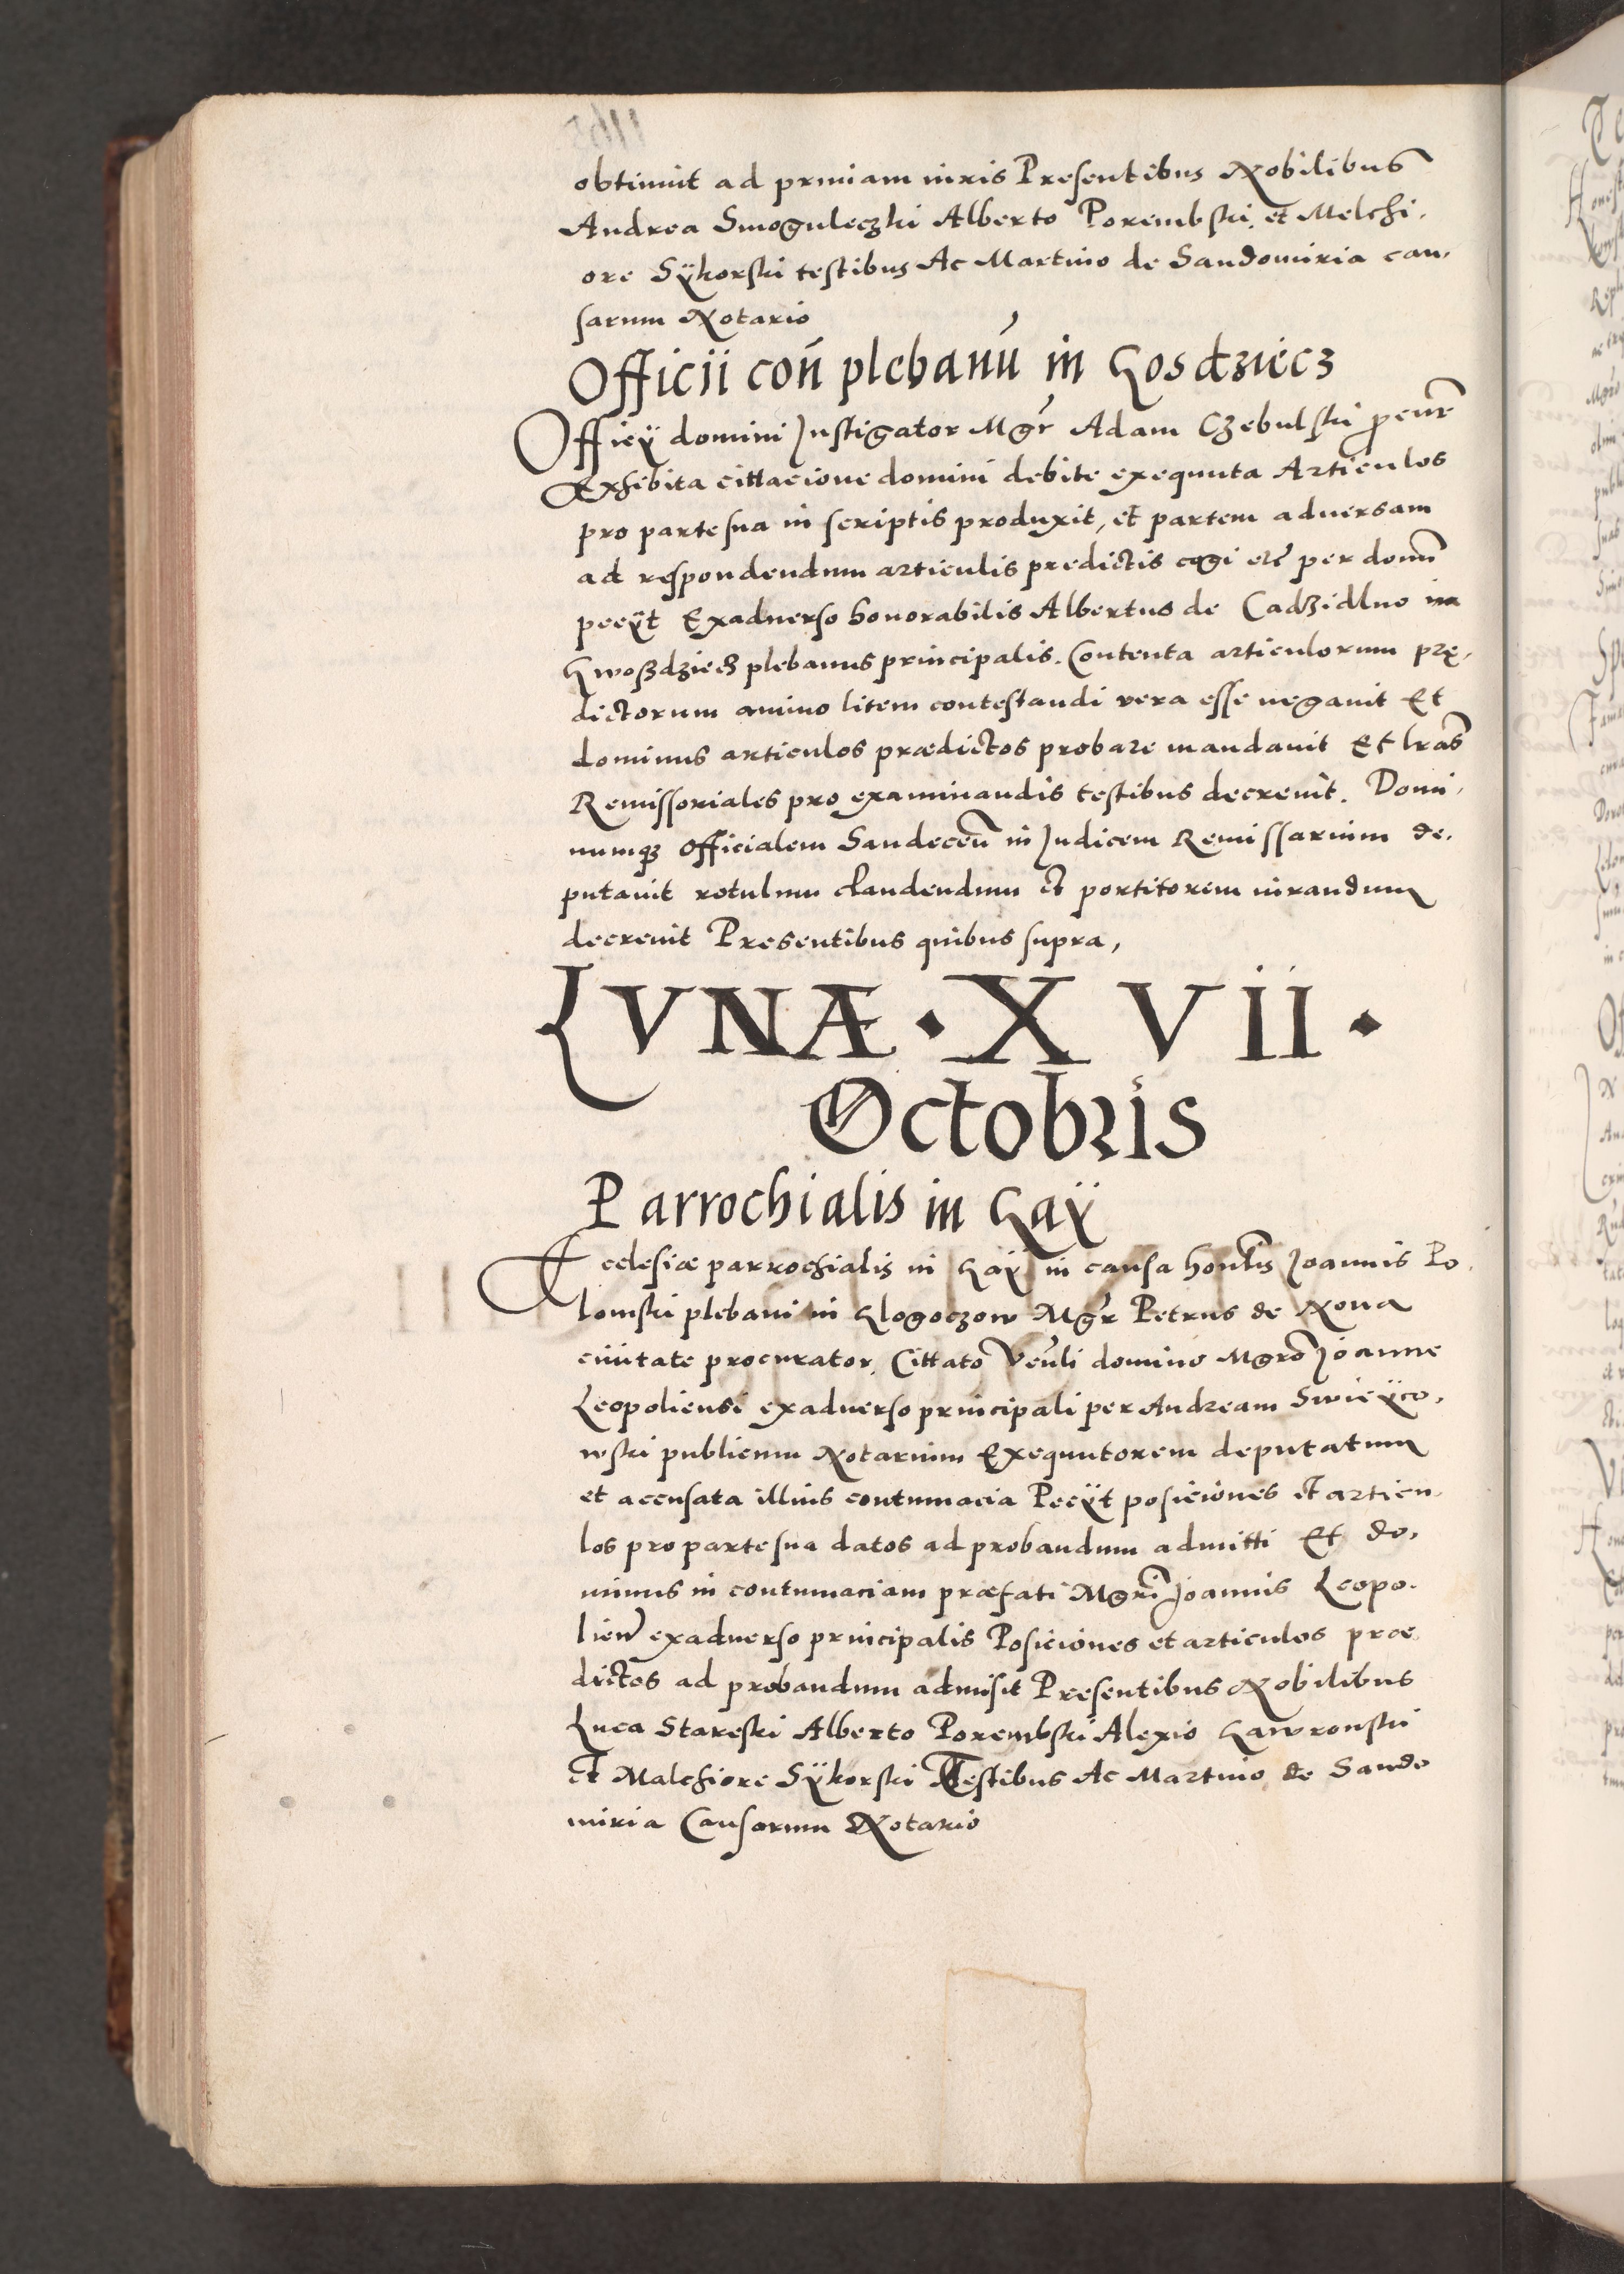 obtinuit ad primam iuris Presentibus Nobilibus
Andrea Smoguleczki Alberto Porembski, et Melchi,
ore Sÿkorski testibus Ac Martino de Sandomiria cau,
sarum Notario
Officii coñ plebanū in Gosdziecz
Officÿ domini Instigator Mgr Adam Czebulski procur
Exhibita cittacione domini debite exequuta Articulos
pro parte sua in scriptis produxit, et partem aduersam
ad respondendum articulis predictis cogi etc per domū
pecÿt Exaduerso honorabilis Albertus de Cadzidlno in
Gwoszdziecz plebanus principalis. Contenta articulorum prę,
dictorum animo litem contestandi vera esse negauit Et
dominus articulos prædictos probare mandauit Et lras
Remissoriales pro examinandis testibus decreuit. Domi,
numq3 Officialem Sandeceñ in Iudicem Remissarium de,
putauit rotulum claudendum et portitorem iurandum
decreuit Presentibus quibus supra,
LVNÆ · XVII ·
Octobris
Parrochialis in Gaÿ
Ecclesiæ parrochialis in Gaÿ in causa honlis Joannis Po,
lomski plebani in Glogoczow Mgr Petrus de Noua
ciuitate procurator, Cittato Venli domino Mgro Joanne
Leopoliensi exaduerso principali per Andream Swieÿco,
wski publicum Notarium Exequutorem deputatum
et accusata illius contumacia Pecÿt posiciones et articu,
los pro parte sua datos ad probandum admitti Et do,
minus in contumaciam præfati Mgri Joannis Leopo,
lieñ exaduerso principalis Posiciones et articulos præ,
dictos ad probandum admisit Presentibus Nobilibus
Luca Stareski Alberto Porembski Alexio Gawronski
et Malchiore Sÿkorski Testibus Ac Martino de Sando
miria Causarum Notario